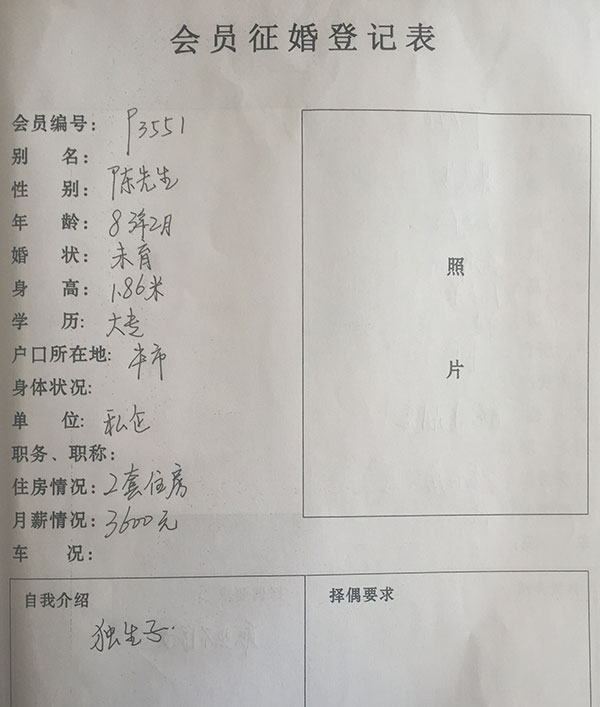 会员征婚登记表
会员编号: P3551
别 名:
性 别: 陈先生
年 龄: 83年2月
婚 状: 未育
身 高: 1.86米
学 历: 大专
户口所在地: 本市
身体状况:
单 位: 私企
职务、职称:
住房情况: 2套住房
月薪情况: 3600元
车 况:
照
片
自我介绍
独生子.
择偶要求